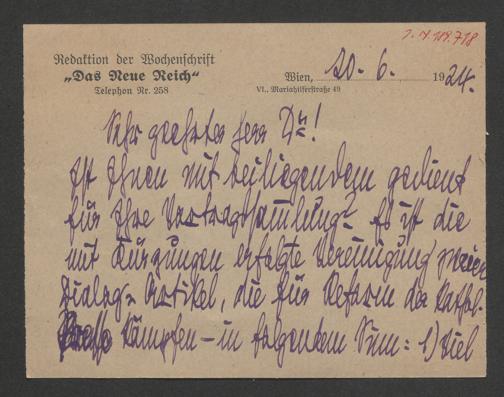 J. N. 189.718
Redaktion der Wochenschrift
„Das Neue Reich“
Telephon Nr. 258
Wien, 20. 6. 1924.
VI., Mariahilferstraße 49
Sehr geehrter Herr Dr!
Ist Ihnen mit beiliegendem gedient
für Ihre Vortragssammlung? Es ist die
mit Kürzungen erfolgte Vereinigung zweier
Dialog-Artikel, die für Reform der kathol.
Presse kämpfen – in folgendem Sinn: 1) Viel